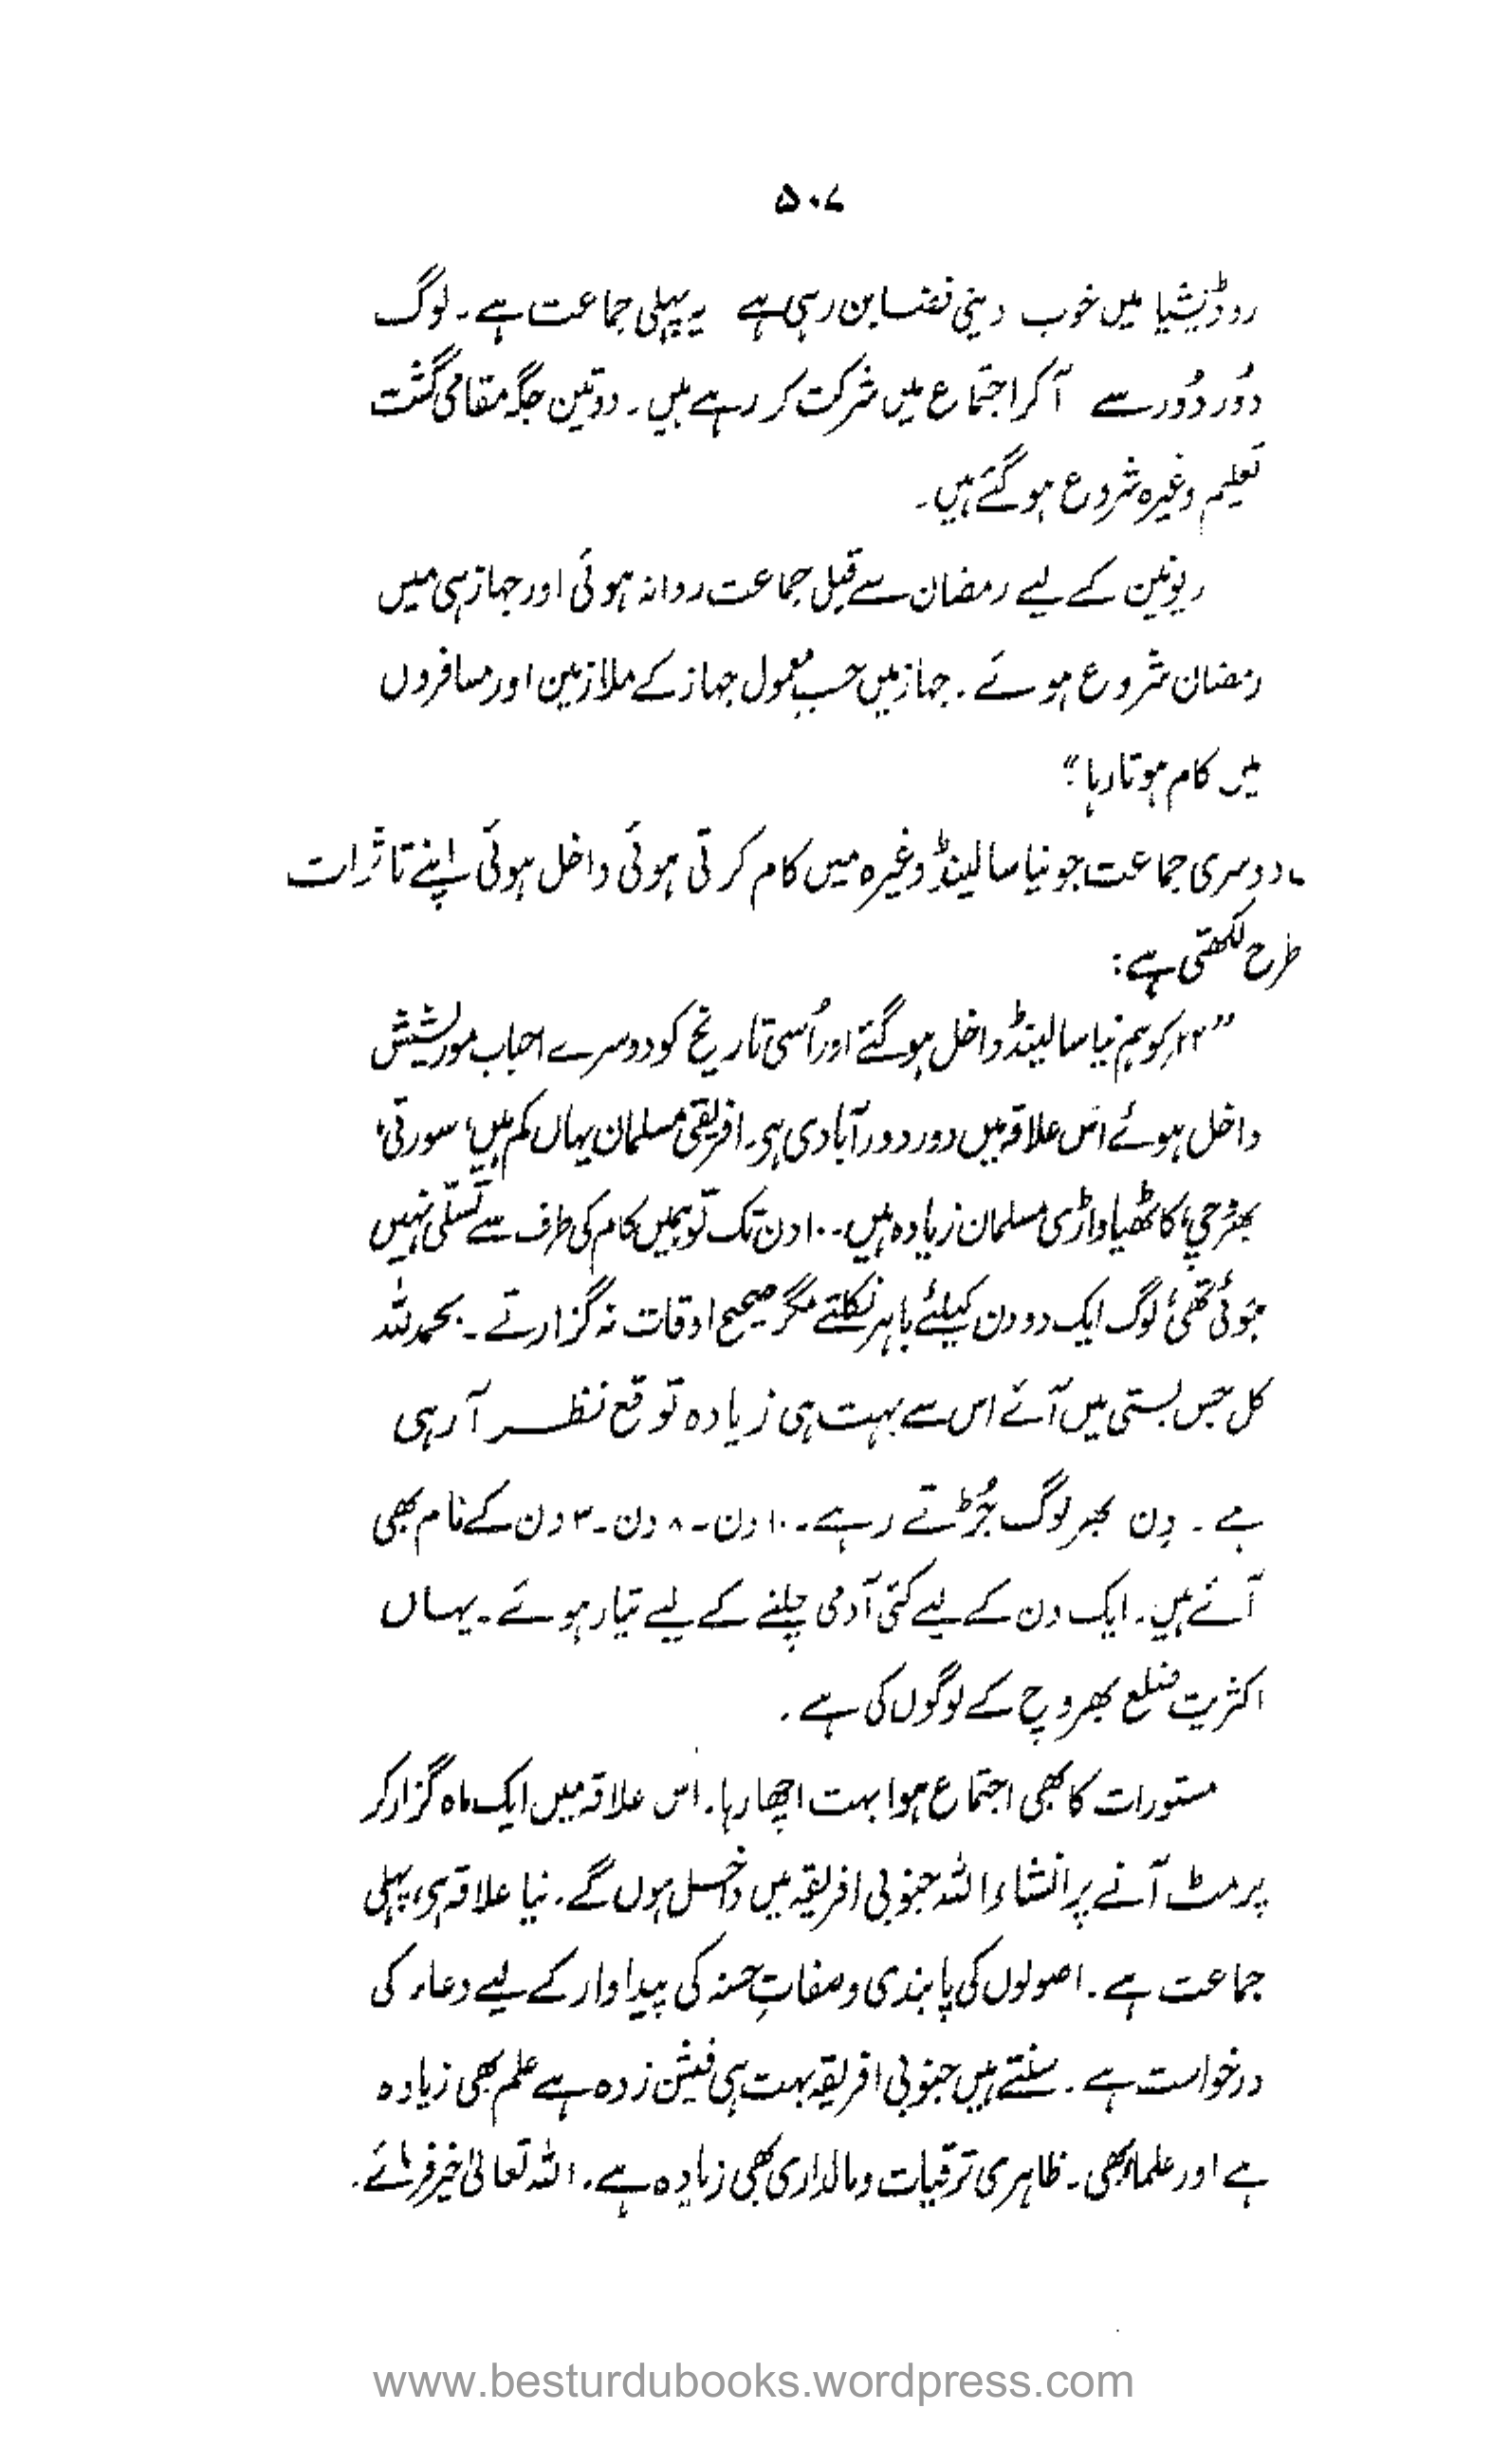 ۵۰۷
روڈیشیا میں خوب دینی فضا بن رہی ہے یہ پہلی جماعت ہے۔ لوگ
دُور دُور سے آکر اجتماع میں شرکت کر رہے ہیں۔ دو تین جگہ مقامی گشت
تعلیم وغیرہ شروع ہو گئے ہیں۔
ریونین کے لیے رمضان سے قبل جماعت روانہ ہوئی اور جہاز ہی میں
رمضان شروع ہوئے۔ جہاز میں حسبِ معمول جہاز کے ملازمین اور مسافروں
میں کام ہوتا رہا"
دوسری جماعت جو نیاسا لینڈ وغیرہ میں کام کرتی ہوئی داخل ہوئی اپنے تاثرات
طرح لکھتی ہے:
"۲۲ کو ہم نیاسا لینڈ داخل ہو گئے اور اُسی تاریخ کو دوسرے احباب موریشیش
داخل ہوئے اس علاقہ میں دور دور آبادی ہی۔ افریقی مسلمان یہاں کم ہیں، سورتی،
بھڑچی، کاٹھیاواڑی مسلمان زیادہ ہیں۔ ۱۰ دن تک تو ہمیں کام کی طرف سے تسلّی نہیں
ہوئی تھی، لوگ ایک دو دن کیلئے باہر نکلتے مگر صحیح اوقات نہ گزارتے۔ بحمدللہ
کل جس بستی میں آئے اس سے بہت ہی زیادہ توقع نظر آرہی
ہے۔ دِن بھر لوگ جُڑتے رہے۔ ۱۰ دن۔ ۸ دن۔ ۳ دن کے نام بھی
آئے ہیں۔ ایک دن کے لیے کئی آدمی چلنے کے لیے تیار ہوئے۔ یہاں
اکثریت ضلع بھروچ کے لوگوں کی ہے۔
مستورات کا بھی اجتماع ہوا بہت اچھا رہا۔ اس علاقہ میں ایک ماہ گزار کر
پرمٹ آنے پر انشاءاللہ جنوبی افریقہ میں داخل ہوں گے۔ نیا علاقہ ہی، پہلی
جماعت ہے۔ اصولوں کی پابندی و صفاتِ حسنہ کی پیداوار کے لیے دعاء کی
درخواست ہے۔ سنتے ہیں جنوبی افریقہ بہت ہی فیشن زدہ ہے علم بھی زیادہ
ہے اور علماء بھی۔ ظاہری ترقیات و مالداری بھی زیادہ ہے۔ اللہ تعالیٰ خیر فرمائے۔
www.besturdubooks.wordpress.com